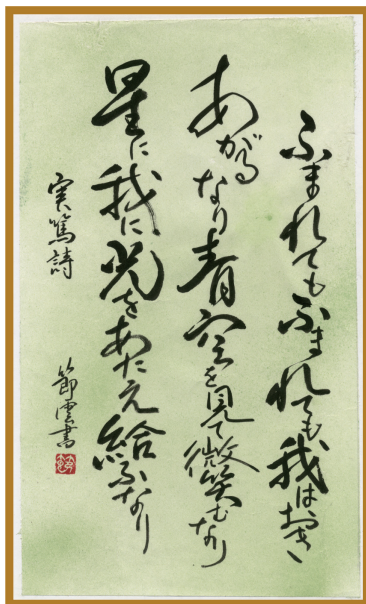 ふまれてもふまれても我はおき
あがるなり青空を見て微笑むなり
星に我に光をあたえ給ふなり
実篤詩
節雲書